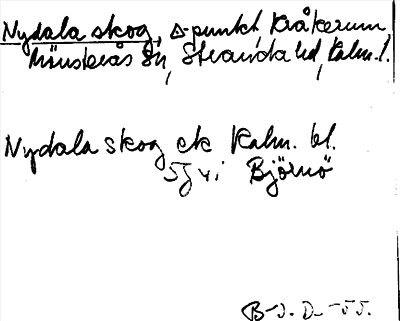 Nydala skog, Δ-punkt, Kråkerum
Mönsterås sn, Stranda hd, Kalm. l.
Nydala skog ek Kalm. bl.
5j vi Björnö
B-J. D. -55.